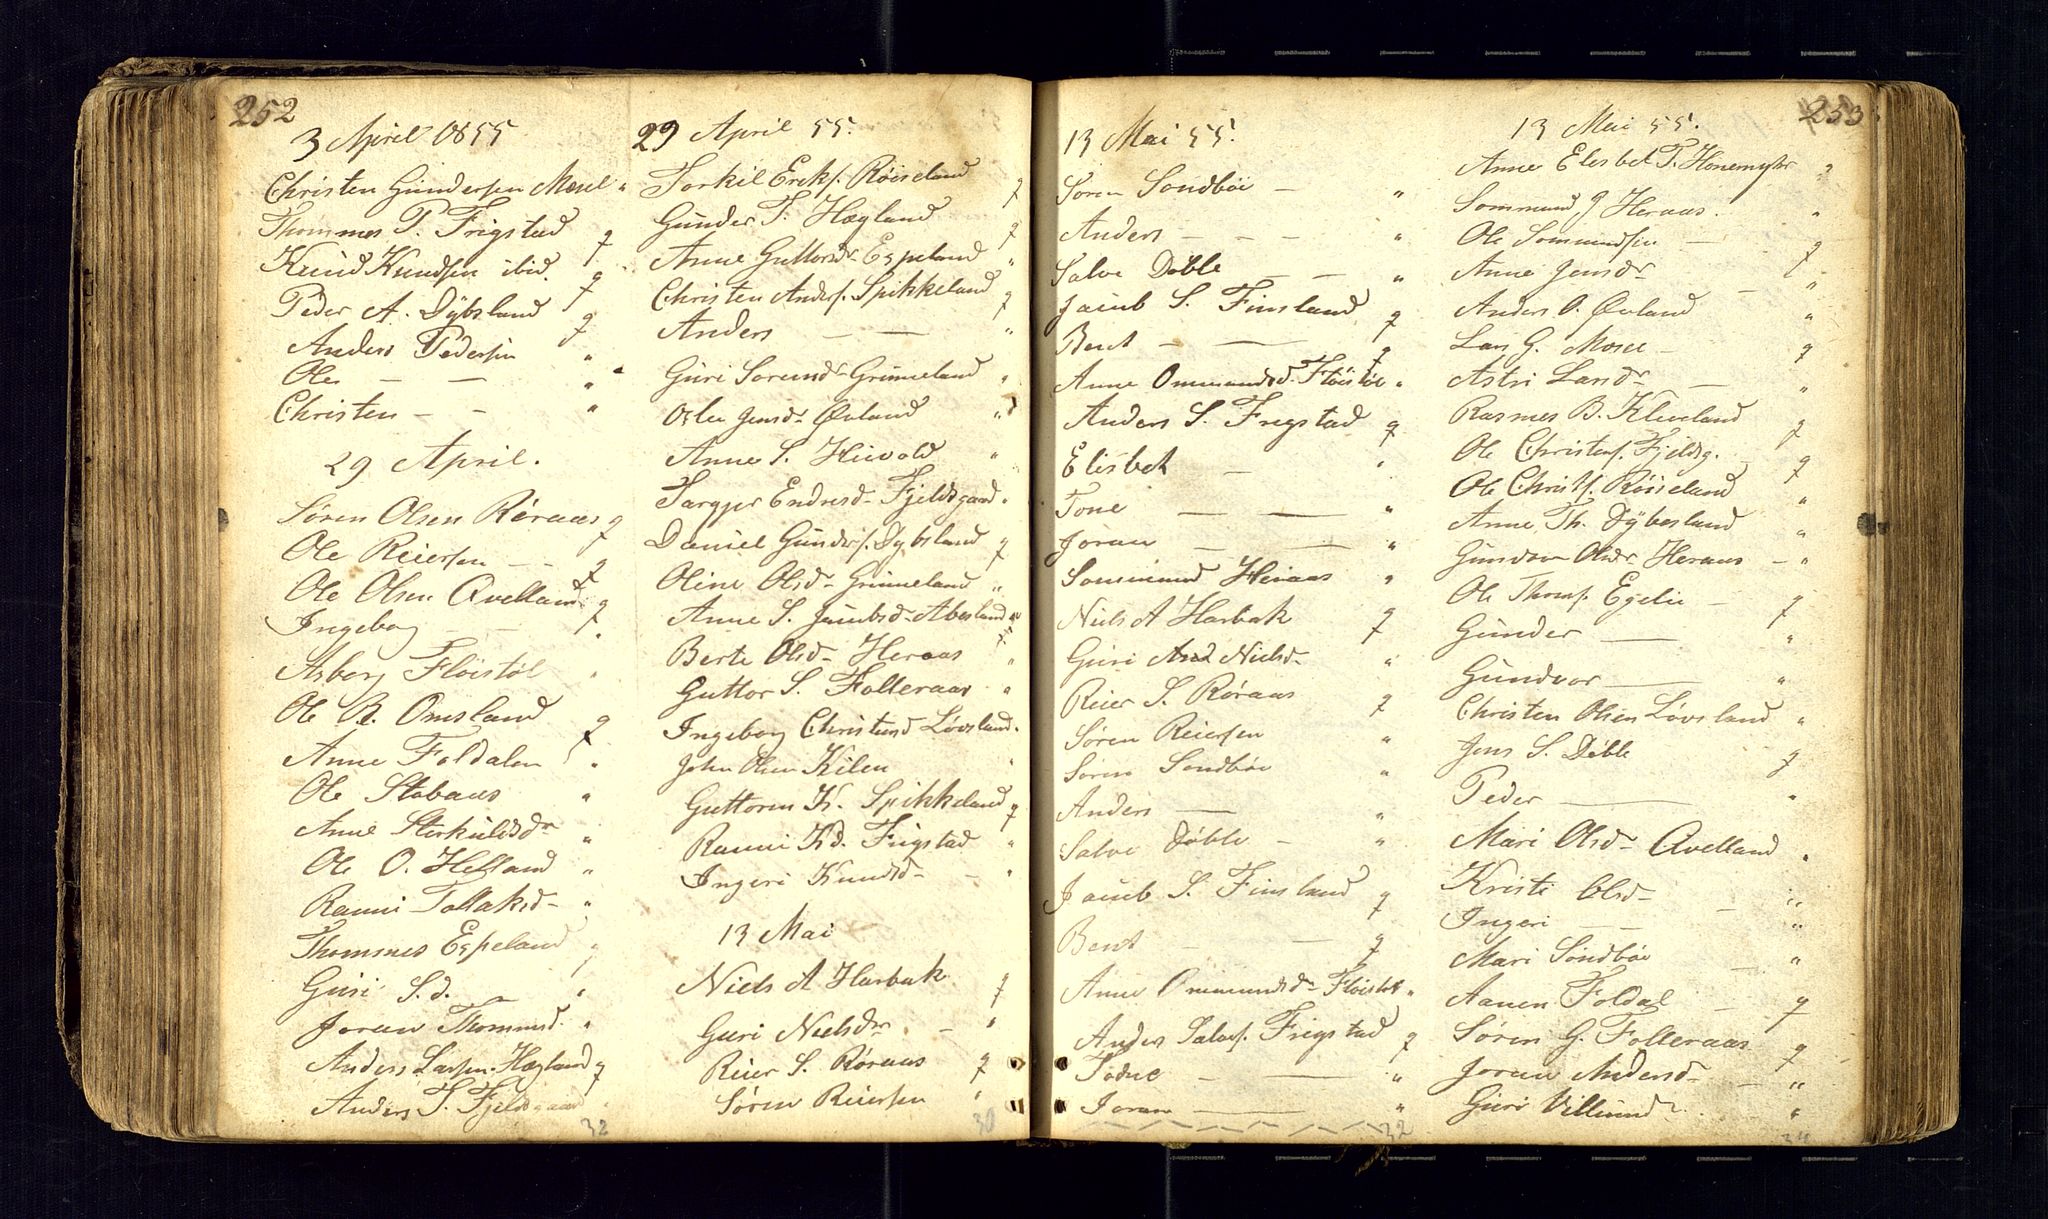 252
3 April 1855
Christen Gundersen Mosel "
Thommes P. Frigstad g
Knud Knudsen ibid. g
Peder A. Dybsland g
Anders Pedersen "
Ole — — "
Christen — - "
29 April.
Søren Olsen Røraas g
Ole Reiersen — - g
Ole Olsen Qvelland g
Ingeborg — "
Asborg Fløistøl "
Ole B. Omsland g
Anne Foldalen "
Ole Stabaas "
Anne Sterkulsdr "
Ole O. Helland "
Ranni Tollaksd- "
Thommes Espeland g
Guri S.d. "
Joran Thommsd. "
Anders Larsen Hægland g
Anders T. Fjeldsgaard "
32
29 April 55.
Torkil Eriks. Røiseland g
Gunder T. Hægland g
Anne Guttorsdr Espeland "
Christen Anders. Spikkeland g
Anders — — "
Guri Sorundr Grimeland "
Oslee Jensdr Øvland "
Anne S. Heivold "
Targjer Endresd- Fjeldsgaard "
Daniel Gunders. Dybsland g
Oline Olsd- Grimeland "
Anne S. Jacobsd- Abesland "
Berte Olsd- Heraas "
Guttor S. Folleraas "
Ingeborg Christensd Løvsland "
John Olsen Kilen "
Guttorm K. Spikkeland g
Ranni Kd. Frigstad "
Ingeri Knudsd- - "
13 Mai
Niels A Harbak g
Guri Nielsdr — "
Reier S. Røraas g
Søren Reiersen "
30
13 Mai 55.
Søren Sondbøe — "
Anders — — — "
Salve Døble — — "
Jacob S. Finsland g
Bent — — g
Anne Ommundsd. Fløistøl "
Anders S. Frigstad g
Elisbet — "
Tone — — "
Joran — — "
Sommund Heraas "
Niels A Harbak g
Guri And Nielsd- "
Reier S. Røraas g
Søren Reiersen "
Søren Sondbøe "
Anders — "
Salve Døble — "
Jacob S. Finsland g
Bent — — g
Anne Ommundsdr Fløistøl "
Anders Salves. Frigstad g
Todne — — "
Joran — "
32
253
13 Mai 55.
Anne Elesbet T. Honemyhr "
Sommund J Heraas. "
Ole Sommundsen — g
Anne Jensdr — "
Anders O. Øvland "
Lars G. Mosel — g
Astri Larsdr — "
Rasmes B. Kleveland g
Ole Christens. Fjeldsg. — g
Ole Christs. Røiseland "
Anne Th. Dybesland "
Gundvor Olsdr Heraas — "
Ole Thoms. Egelie — g
Gunder — "
Gundvor — "
Christen Olsen Løvsland "
Jens S. Døble g
Peder — "
Mari Olsd- Qvelland "
Kristi Olsd- — "
Ingeri — — "
Mari Sondbøe — "
Aanen Foldal — g
Søren G. Folleraas g
Joran Andersd- — "
Guri Villumdr "
34